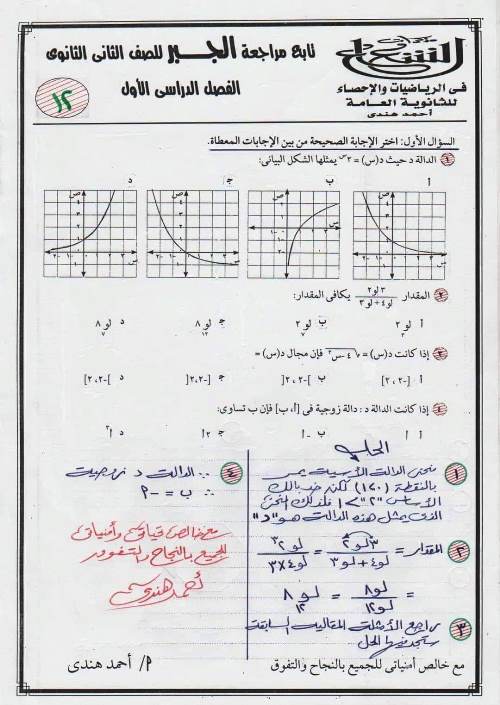 تابع مراجعة الجبر للصف الثانى الثانوى
الفصل الدراسى الأول
١٢
فى الرياضيات والإحصاء
للثانوية العامة
أحمد هندى
السؤال الأول: اختر الإجابة الصحيحة من بين الإجابات المعطاة.
١ الدالة د حيث د(س) = ٢س يمثلها الشكل البيانى:
أ ب جـ د
٢ المقدار ٣ لو٢ / لو٤ + لو٣ يكافى المقدار:
أ لو٢ ب لو ٢ جـ لو ٨ د لو ٨
٣ إذا كانت د(س) = √٤ - س٢ فإن مجال د(س) =
أ [-٢، ٢] ب [-٢، ٢[ جـ ]-٢، ٢[ د ]-٢، ٢]
٤ إذا كانت الدالة د : دالة زوجية فى [أ، ب] فإن ب تساوى:
أ أ ب -أ جـ ٢أ د أ٢
الحل
١ منحنى الدالة الأسية يمر
بالنقطة (٠، ١) لكنه
الأساس "٢" > ١ فلذلك المنحنى
الذى يمثل هذه الدالة هو "د"
٢ المقدار = ٣ لو ٢ / لو٤ + لو٣ = لو ٢٣ / لو ٤×٣
= لو٨ / لو١٢ = لو ٨ ١٢
٣ راجع الأمثلة المقالية السابقة
ستجد فيها الحل
٤ ∵ الدالة د زوجية
∴ ب = -أ
مع خالص تحياتى وأمنياتى
للجميع بالنجاح والتفوق
أحمد هندى
مع خالص أمنياتى للجميع بالنجاح والتفوق
م/ أحمد هندى